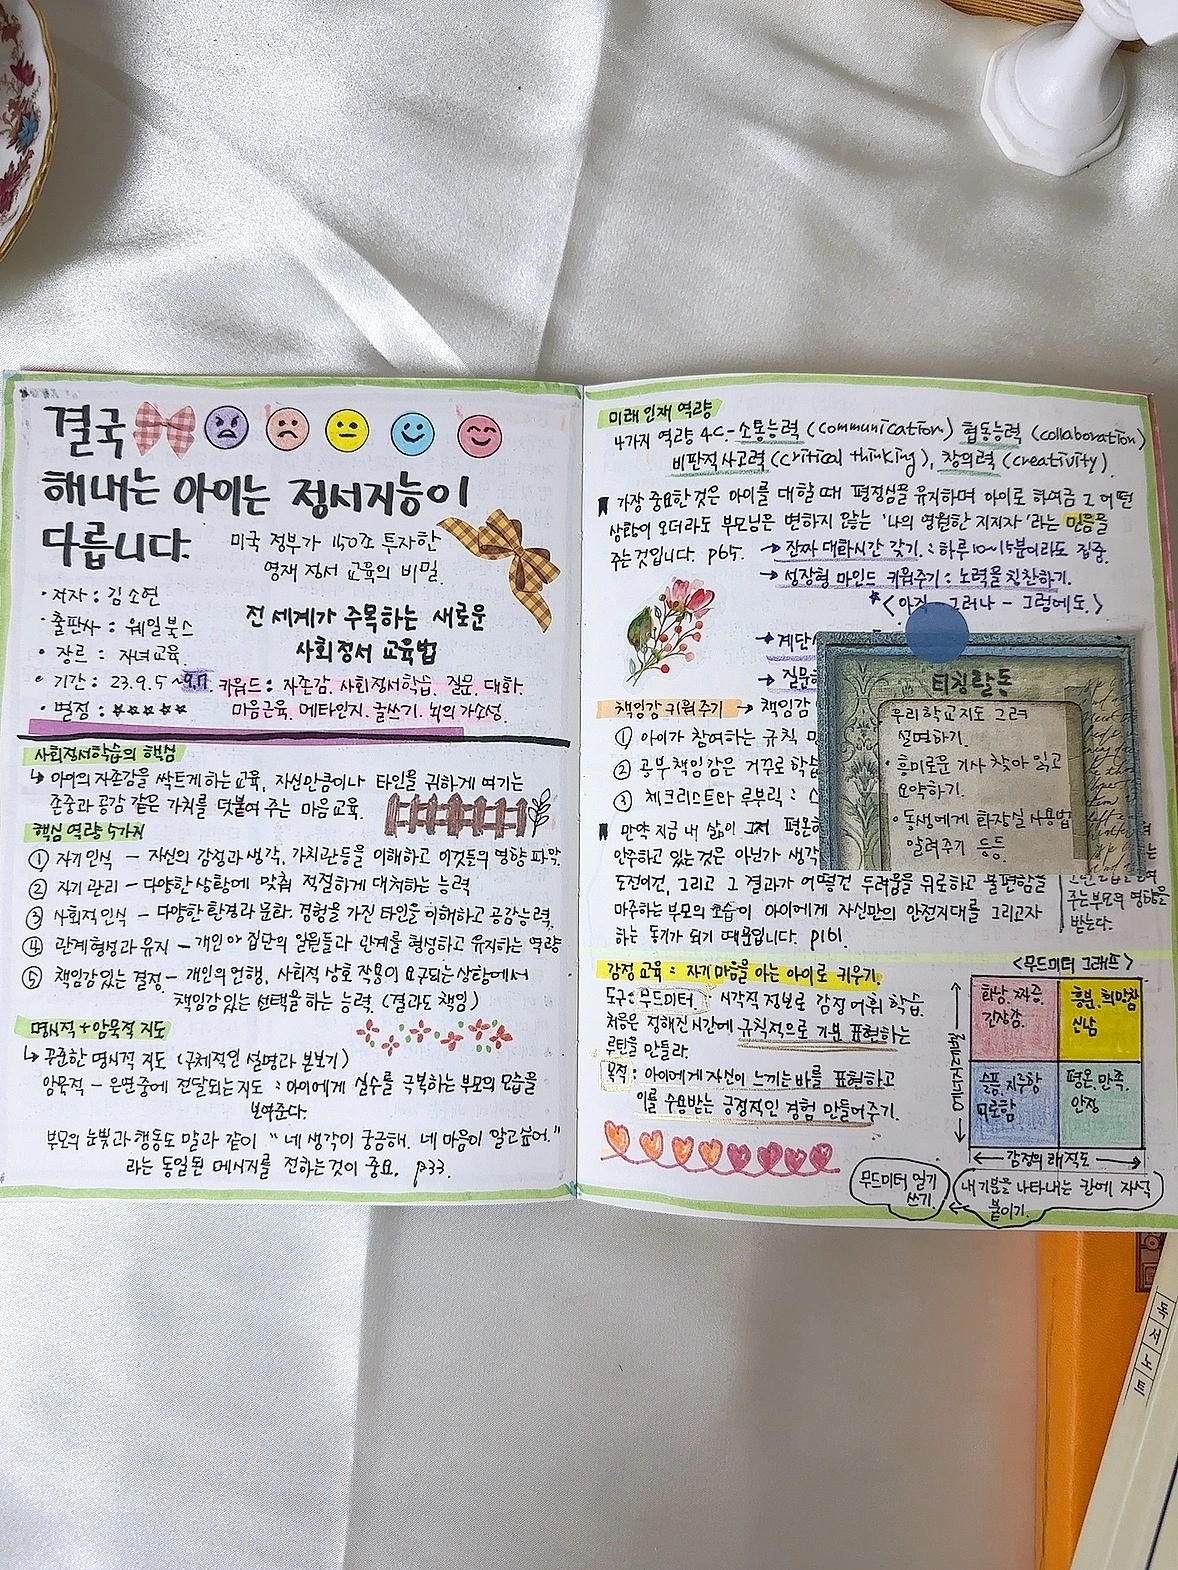 결국
해내는 아이는 정서지능이
다릅니다.
미국 정부가 150조 투자한
영재 정서 교육의 비밀.
• 저자 : 김소연
• 출판사 : 웨일북스
• 장르 : 자녀교육
• 기간 : 23.9.5 ~ 9.7
• 별점 : ★★★★★
전 세계가 주목하는 새로운
사회정서 교육법
키워드 : 자존감. 사회정서학습. 질문. 대화.
마음근육. 메타인지. 글쓰기. 뇌의 가소성.
사회정서학습의 핵심
↳ 아이의 자존감을 싹트게 하는 교육, 자신만큼이나 타인을 귀하게 여기는
존중과 공감 같은 가치를 덧붙여 주는 마음 교육.
핵심 역량 5가지
① 자기인식 – 자신의 감정과 생각, 가치관등을 이해하고 이것들의 영향 파악.
② 자기 관리 – 다양한 상황에 맞춰 적절하게 대처하는 능력
③ 사회적 인식 – 다양한 환경과 문화. 경험을 가진 타인을 이해하고 공감능력.
④ 관계형성과 유지 – 개인이나 집단의 일원들과 관계를 형성하고 유지하는 역량
⑤ 책임감있는 결정 – 개인의 언행, 사회적 상호 작용이 요구되는 상황에서
책임감있는 선택을 하는 능력. (결과도 책임)
명시적 + 암묵적 지도
↳ 꾸준한 명시적 지도 (구체적인 설명과 본보기)
암묵적 – 은연중에 전달되는 지도 : 아이에게 실수를 극복하는 부모의 모습을
보여준다.
부모의 눈빛과 행동도 말과 같이 "네 생각이 궁금해. 네 마음이 알고싶어."
라는 동일된 메시지를 전하는 것이 중요. p33.
미래 인재 역량
4가지 역량 4C - 소통능력 (communication) 협동능력 (collaboration)
비판적 사고력 (critical thinking), 창의력 (creativity)
가장 중요한 것은 아이를 대할 때 평정심을 유지하며 아이로 하여금 그 어떤
상황이 오더라도 부모님은 변하지 않는 '나의 영원한 지지자'라는 믿음을
주는 것입니다. p65.
→ 진짜 대화시간 갖기 : 하루 10~15분이라도 집중.
→ 성장형 마인드 키워주기 : 노력을 칭찬하기.
★<아직 – 그러나 – 그럼에도.>
→ 계단식
→ 질문
책임감 키워주기 → 책임감
① 아이가 참여하는 규칙
② 공부 책임감은 거꾸로 학습
③ 체크리스트와 루브릭 :
티칭활동
우리학교지도 그려
설명하기.
• 흥미로운 기사 찾아 읽고
요약하기.
• 동생에게 화장실 사용법
알려주기 등등.
만약 지금 내 삶이 그저 평온
안주하고 있는 것은 아닌가 생각
도전이건, 그리고 그 결과가 어떻건 두려움을 뒤로하고 불편함을
마주하는 부모의 모습이 아이에게 자신만의 안전지대를 그리고자
하는 동기가 되기 때문입니다. p161.
주는 부모의 영향을
받는다.
감정 교육 : 자기 마음을 아는 아이로 키우기.
도구 : 무드미터 : 시각적 정보로 감정 어휘 학습.
처음은 정해진 시간에 규칙적으로 기분 표현하는
루틴을 만들라.
목적 : 아이에게 자신이 느끼는 바를 표현하고
이를 수용받는 긍정적인 경험 만들어주기.
<무드미터 그래프>
에너지 레벨
화남. 짜증.
긴장감.
흥분. 희망참
신남
슬픔. 지루함
평온. 만족.
안정
감정의 쾌적도
무드미터 일기
쓰기.
내 기분을 나타내는 칸에 자석
붙이기.
독서노트